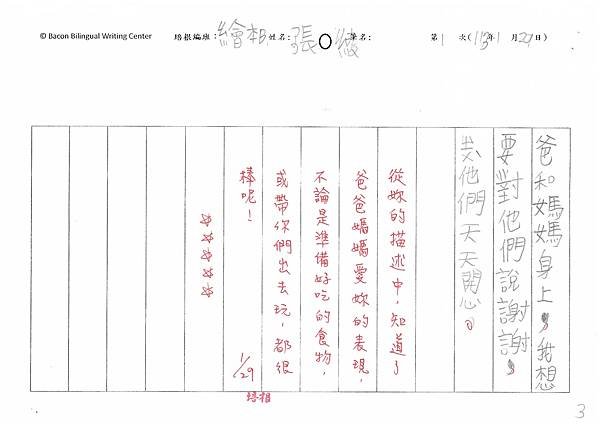 © Bacon Bilingual Writing Center
培根編班：繪本B 姓名：張〇筱 筆名：
第1次(113年1月27日)
爸和媽媽身上，我想
要對他們說謝謝，
祝他們天天開心。
從妳的描述中，知道了
爸爸媽媽愛妳的表現，
不論是準備好吃的食物，
或帶你們出去玩，都很
棒呢！
☆☆☆☆☆
1/29
培相
3